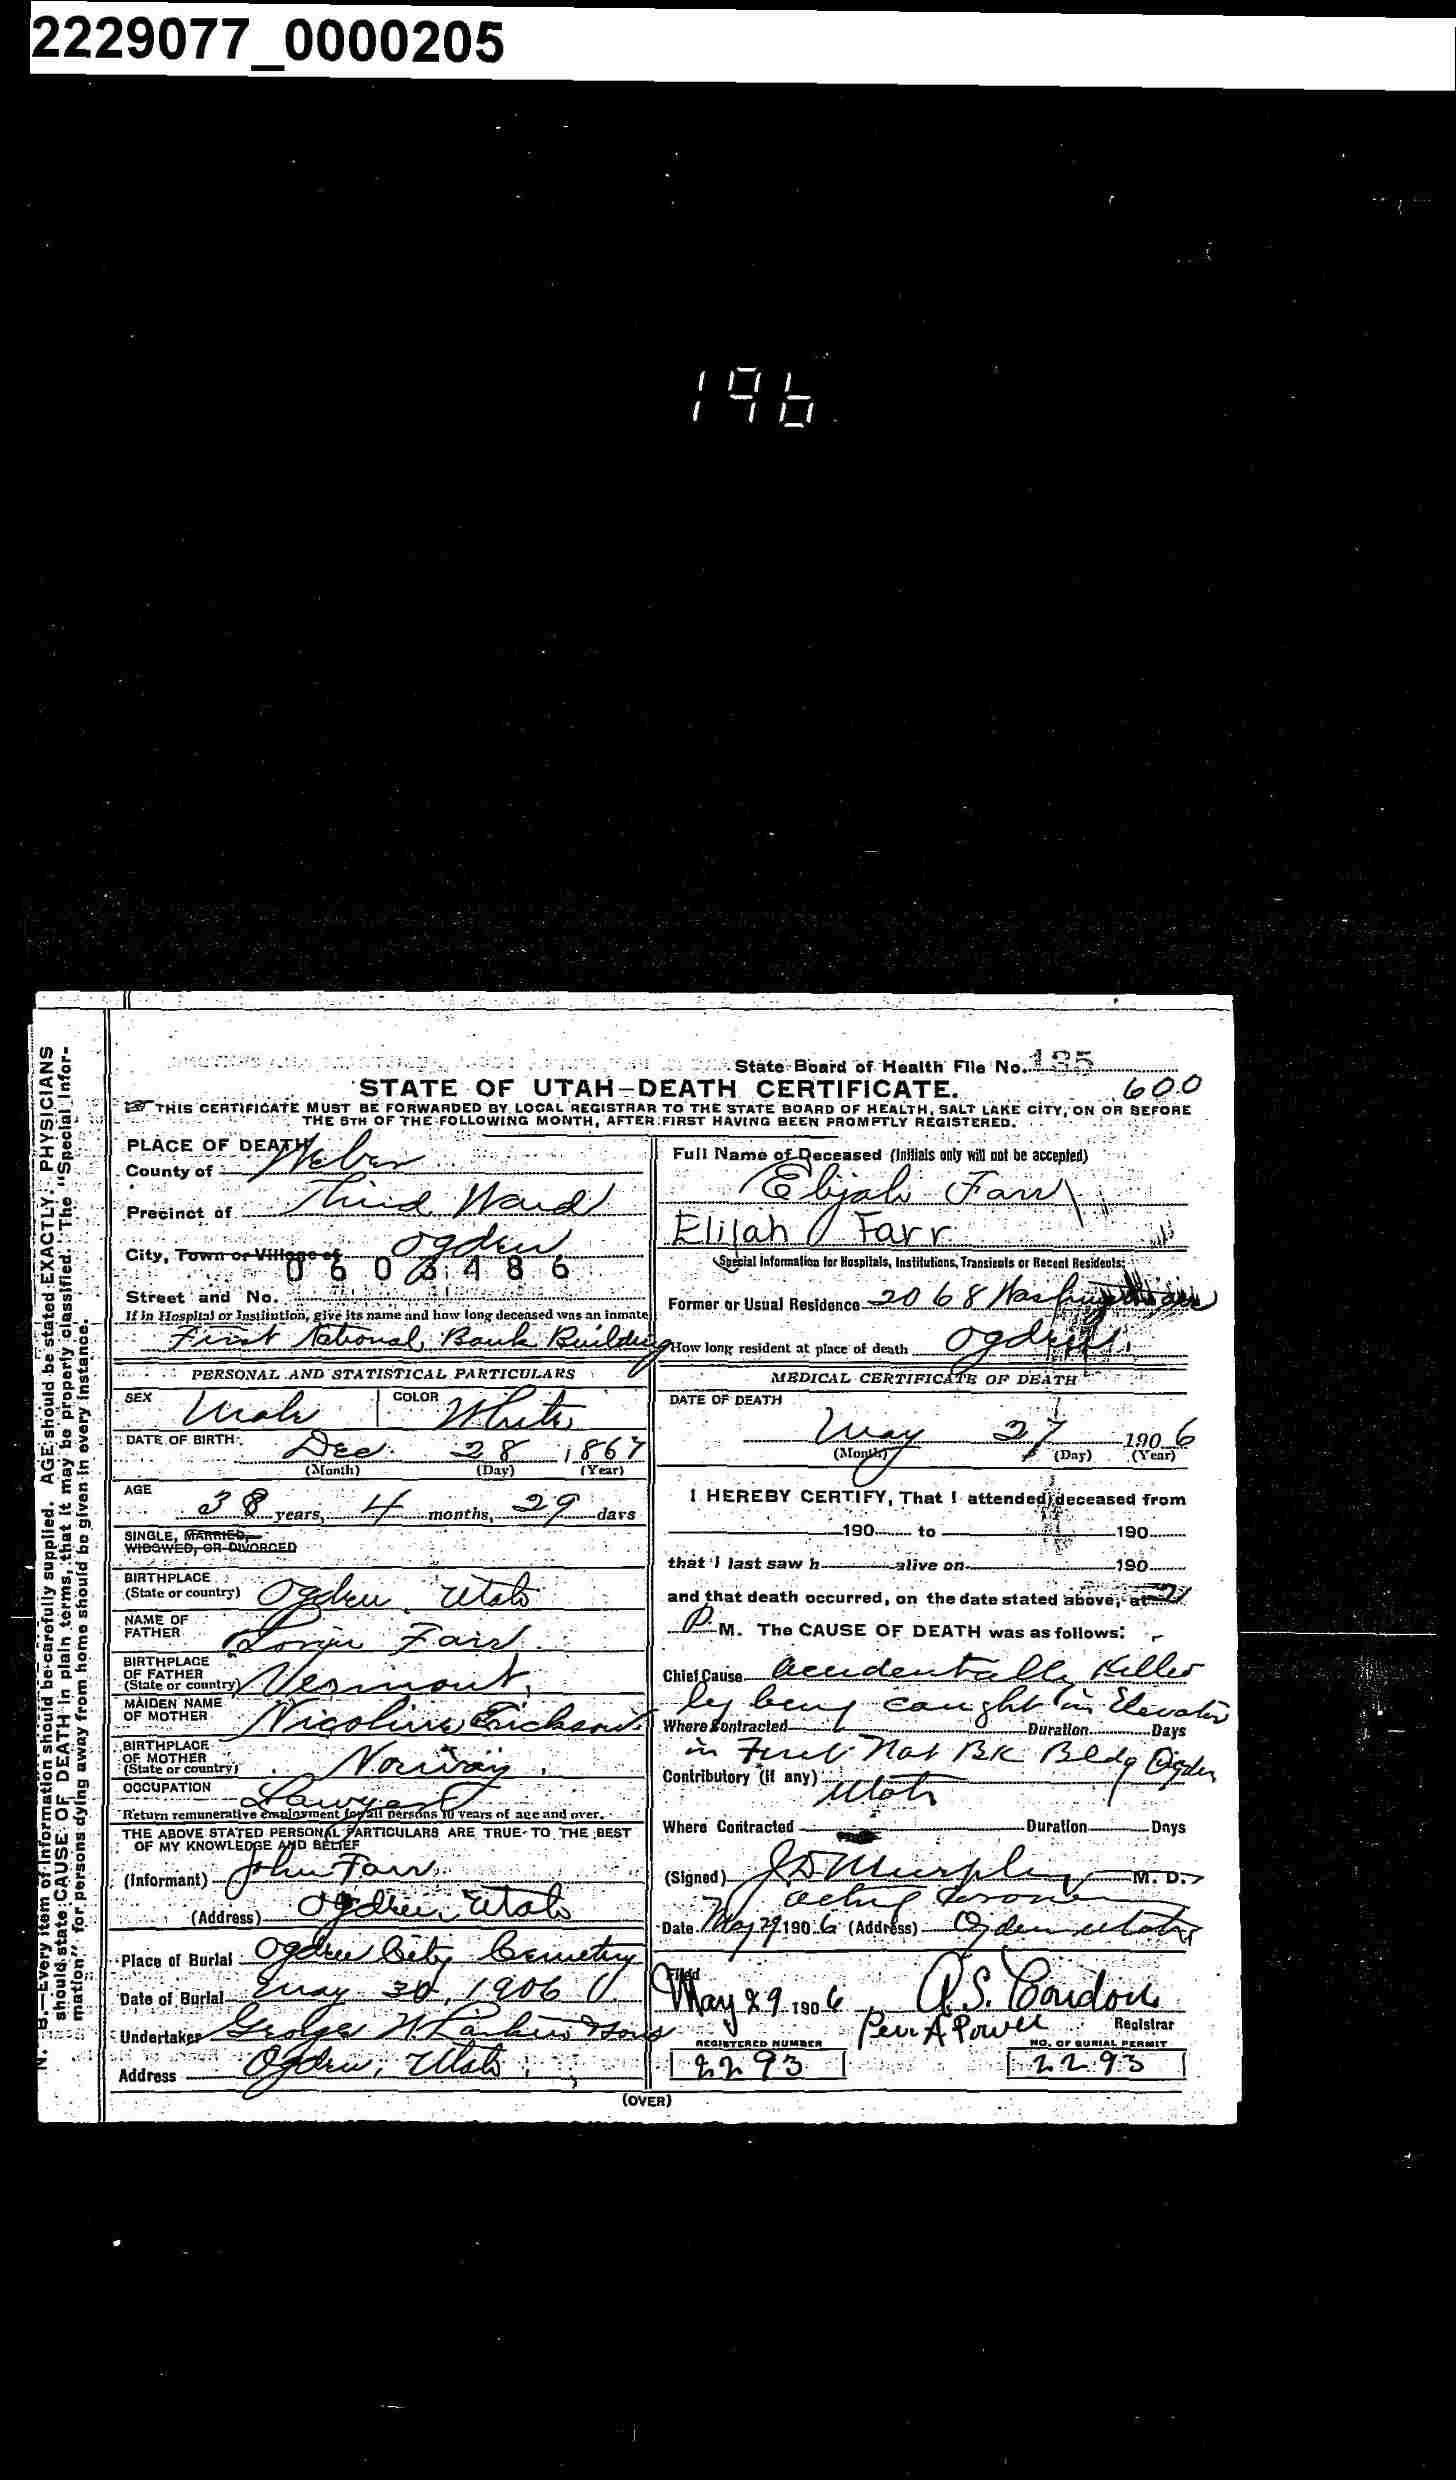 2229077_0000205
196
State Board of Health File No. 195
STATE OF UTAH—DEATH CERTIFICATE.
600
THIS CERTIFICATE MUST BE FORWARDED BY LOCAL REGISTRAR TO THE STATE BOARD OF HEALTH, SALT LAKE CITY, ON OR BEFORE
THE 5TH OF THE FOLLOWING MONTH, AFTER FIRST HAVING BEEN PROMPTLY REGISTERED.
PLACE OF DEATH
County of Weber
Precinct of Third Ward
City, Town or Village of Ogden
0603486
Street and No.
If in Hospital or Institution, give its name and how long deceased was an inmate
First National Bank Building
PERSONAL AND STATISTICAL PARTICULARS
SEX Male COLOR White
DATE OF BIRTH Dec. 28 1867
(Month) (Day) (Year)
AGE
38 years, 4 months, 29 days
SINGLE, MARRIED,
WIDOWED, OR DIVORCED
BIRTHPLACE
(State or country) Ogden Utah
NAME OF
FATHER Lorin Farr
BIRTHPLACE
OF FATHER
(State or country) Vermont,
MAIDEN NAME
OF MOTHER Nicoline Erickson
BIRTHPLACE
OF MOTHER
(State or country) Norway.
OCCUPATION Lawyer
Return remunerative employment for all persons 10 years of age and over.
THE ABOVE STATED PERSONAL PARTICULARS ARE TRUE TO THE BEST
OF MY KNOWLEDGE AND BELIEF
(Informant) John Farr
(Address) Ogden Utah
Place of Burial Ogden City Cemetery
Date of Burial May 30, 1906
Undertaker George W. Larkin & Sons
Address Ogden, Utah
Full Name of Deceased (Initials only will not be accepted)
Elijah Farr
Elijah Farr
Special Information for Hospitals, Institutions, Transients or Recent Residents:
Former or Usual Residence 2068 Washington ave
How long resident at place of death Ogden
MEDICAL CERTIFICATE OF DEATH
DATE OF DEATH
May 27 1906
(Month) (Day) (Year)
I HEREBY CERTIFY, That I attended deceased from
190 to 190
that I last saw h alive on 190
and that death occurred, on the date stated above, at 2
P. M. The CAUSE OF DEATH was as follows:
Chief Cause Accidentally Killed
by being caught in Elevator
Where Contracted Duration Days
in First Nat BK Bldg Ogden
Contributory (if any) Utah
Where Contracted Duration Days
(Signed) J D Murphy M. D.
acting Coroner
Date May 29 1906 (Address) Ogden Utah
Filed
May 29 1906 A.S. Condon
Registrar
Per A Power
REGISTERED NUMBER
2293
NO. OF BURIAL PERMIT
2293
(OVER)
N. B.—Every item of information should be carefully supplied. AGE should be stated EXACTLY. PHYSICIANS
should state CAUSE OF DEATH in plain terms, that it may be properly classified. The "Special Infor-
mation" for persons dying away from home should be given in every instance.